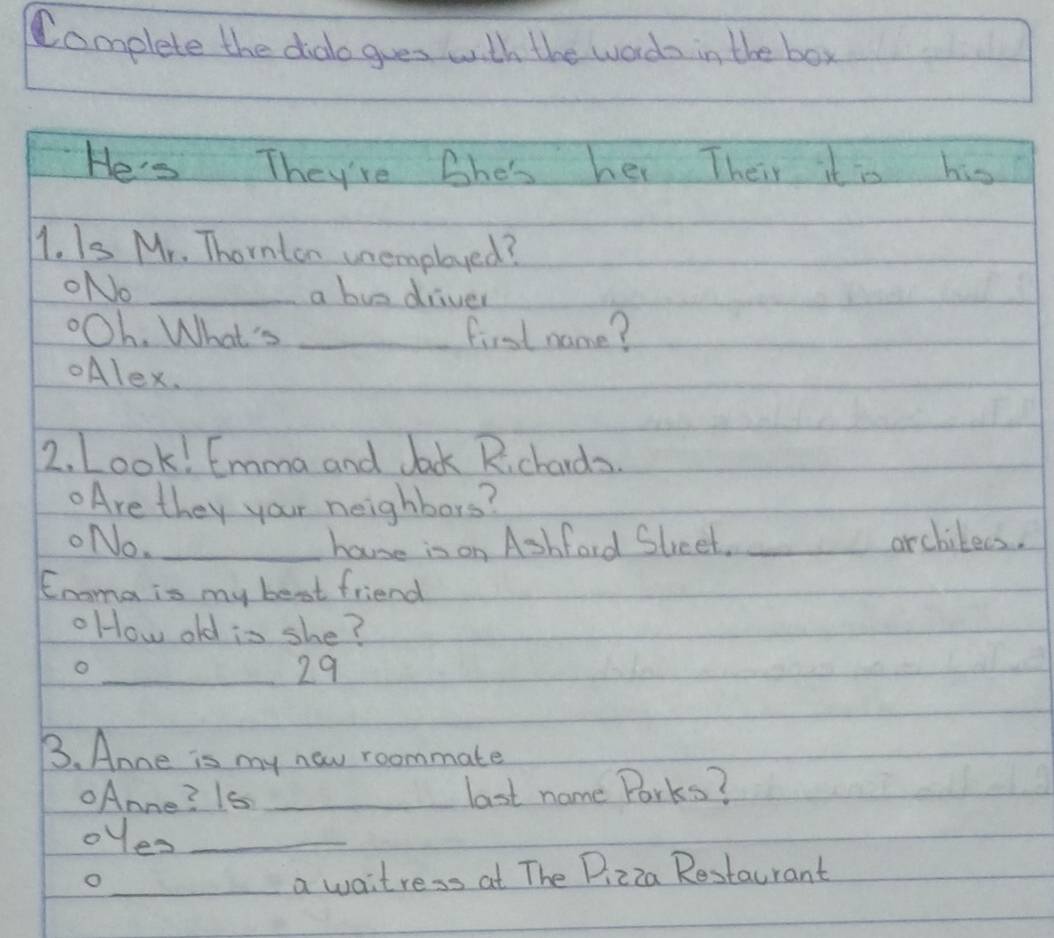 Complete the dialogues with the words in the box
He's They're She's her Their it is his
1. Is Mr. Thornton unemployed?
°No ________ a bus driver
°Oh. What's ________ first name?
°Alex.
2. Look! Emma and Jack Richards.
°Are they your neighbors?
°No. ________ house is on Ashford Street. ________ architecs.
Emma is my best friend
°How old is she?
° ________ 29
3. Anne is my new roommate
°Anne? Is ________ last name Parks?
°Yes ________
° ________ a waitress at The Pizza Restaurant